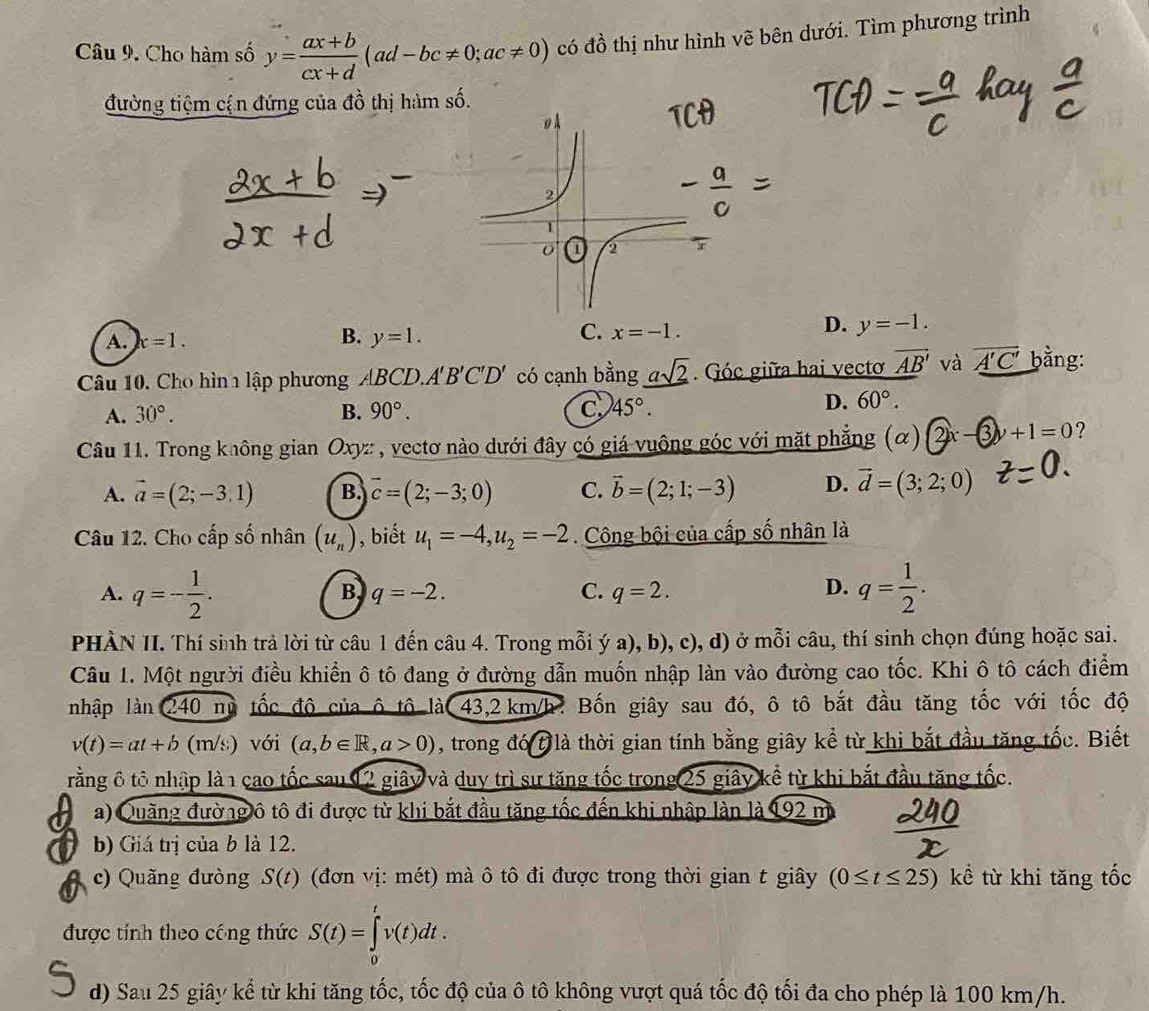 Câu 9. Cho hàm số y = \frac{ax+b}{cx+d} (ad − bc ≠ 0; ac ≠ 0) có đồ thị như hình vẽ bên dưới. Tìm phương trình
đường tiệm cận đứng của đồ thị hàm số.
TCĐ
TCĐ = \frac{-a}{c} hay \frac{a}{c}
\frac{2x+b}{2x+d} ⇒ −
− \frac{a}{c} =
y
2
1
O 1 2 x
A. x = 1. B. y = 1. C. x = −1. D. y = −1.
Câu 10. Cho hình lập phương ABCD.A'B'C'D' có cạnh bằng a√2. Góc giữa hai vectơ \overrightarrow{AB'} và \overrightarrow{A'C'} bằng:
A. 30°. B. 90°. C. 45°. D. 60°.
Câu 11. Trong không gian Oxyz, vectơ nào dưới đây có giá vuông góc với mặt phẳng (α) 2x − 3y + 1 = 0?
A. \vec{a} = (2; −3; 1) B. \vec{c} = (2; −3; 0) C. \vec{b} = (2; 1; −3) D. \vec{d} = (3; 2; 0) z = 0.
Câu 12. Cho cấp số nhân (u_n), biết u_1 = −4, u_2 = −2. Công bội của cấp số nhân là
A. q = −\frac{1}{2}. B. q = −2. C. q = 2. D. q = \frac{1}{2}.
PHẦN II. Thí sinh trả lời từ câu 1 đến câu 4. Trong mỗi ý a), b), c), d) ở mỗi câu, thí sinh chọn đúng hoặc sai.
Câu 1. Một người điều khiển ô tô đang ở đường dẫn muốn nhập làn vào đường cao tốc. Khi ô tô cách điểm
nhập làn 240 m, tốc độ của ô tô là 43,2 km/h. Bốn giây sau đó, ô tô bắt đầu tăng tốc với tốc độ
v(t) = at + b (m/s) với (a, b ∈ ℝ, a > 0), trong đó t là thời gian tính bằng giây kể từ khi bắt đầu tăng tốc. Biết
rằng ô tô nhập làn cao tốc sau 12 giây và duy trì sự tăng tốc trong 25 giây kể từ khi bắt đầu tăng tốc.
Đ a) Quãng đường ô tô đi được từ khi bắt đầu tăng tốc đến khi nhập làn là 192 m
\frac{240}{x}
Đ b) Giá trị của b là 12.
Đ c) Quãng đường S(t) (đơn vị: mét) mà ô tô đi được trong thời gian t giây (0 ≤ t ≤ 25) kể từ khi tăng tốc
được tính theo công thức S(t) = \int_0^t v(t)dt.
S d) Sau 25 giây kể từ khi tăng tốc, tốc độ của ô tô không vượt quá tốc độ tối đa cho phép là 100 km/h.